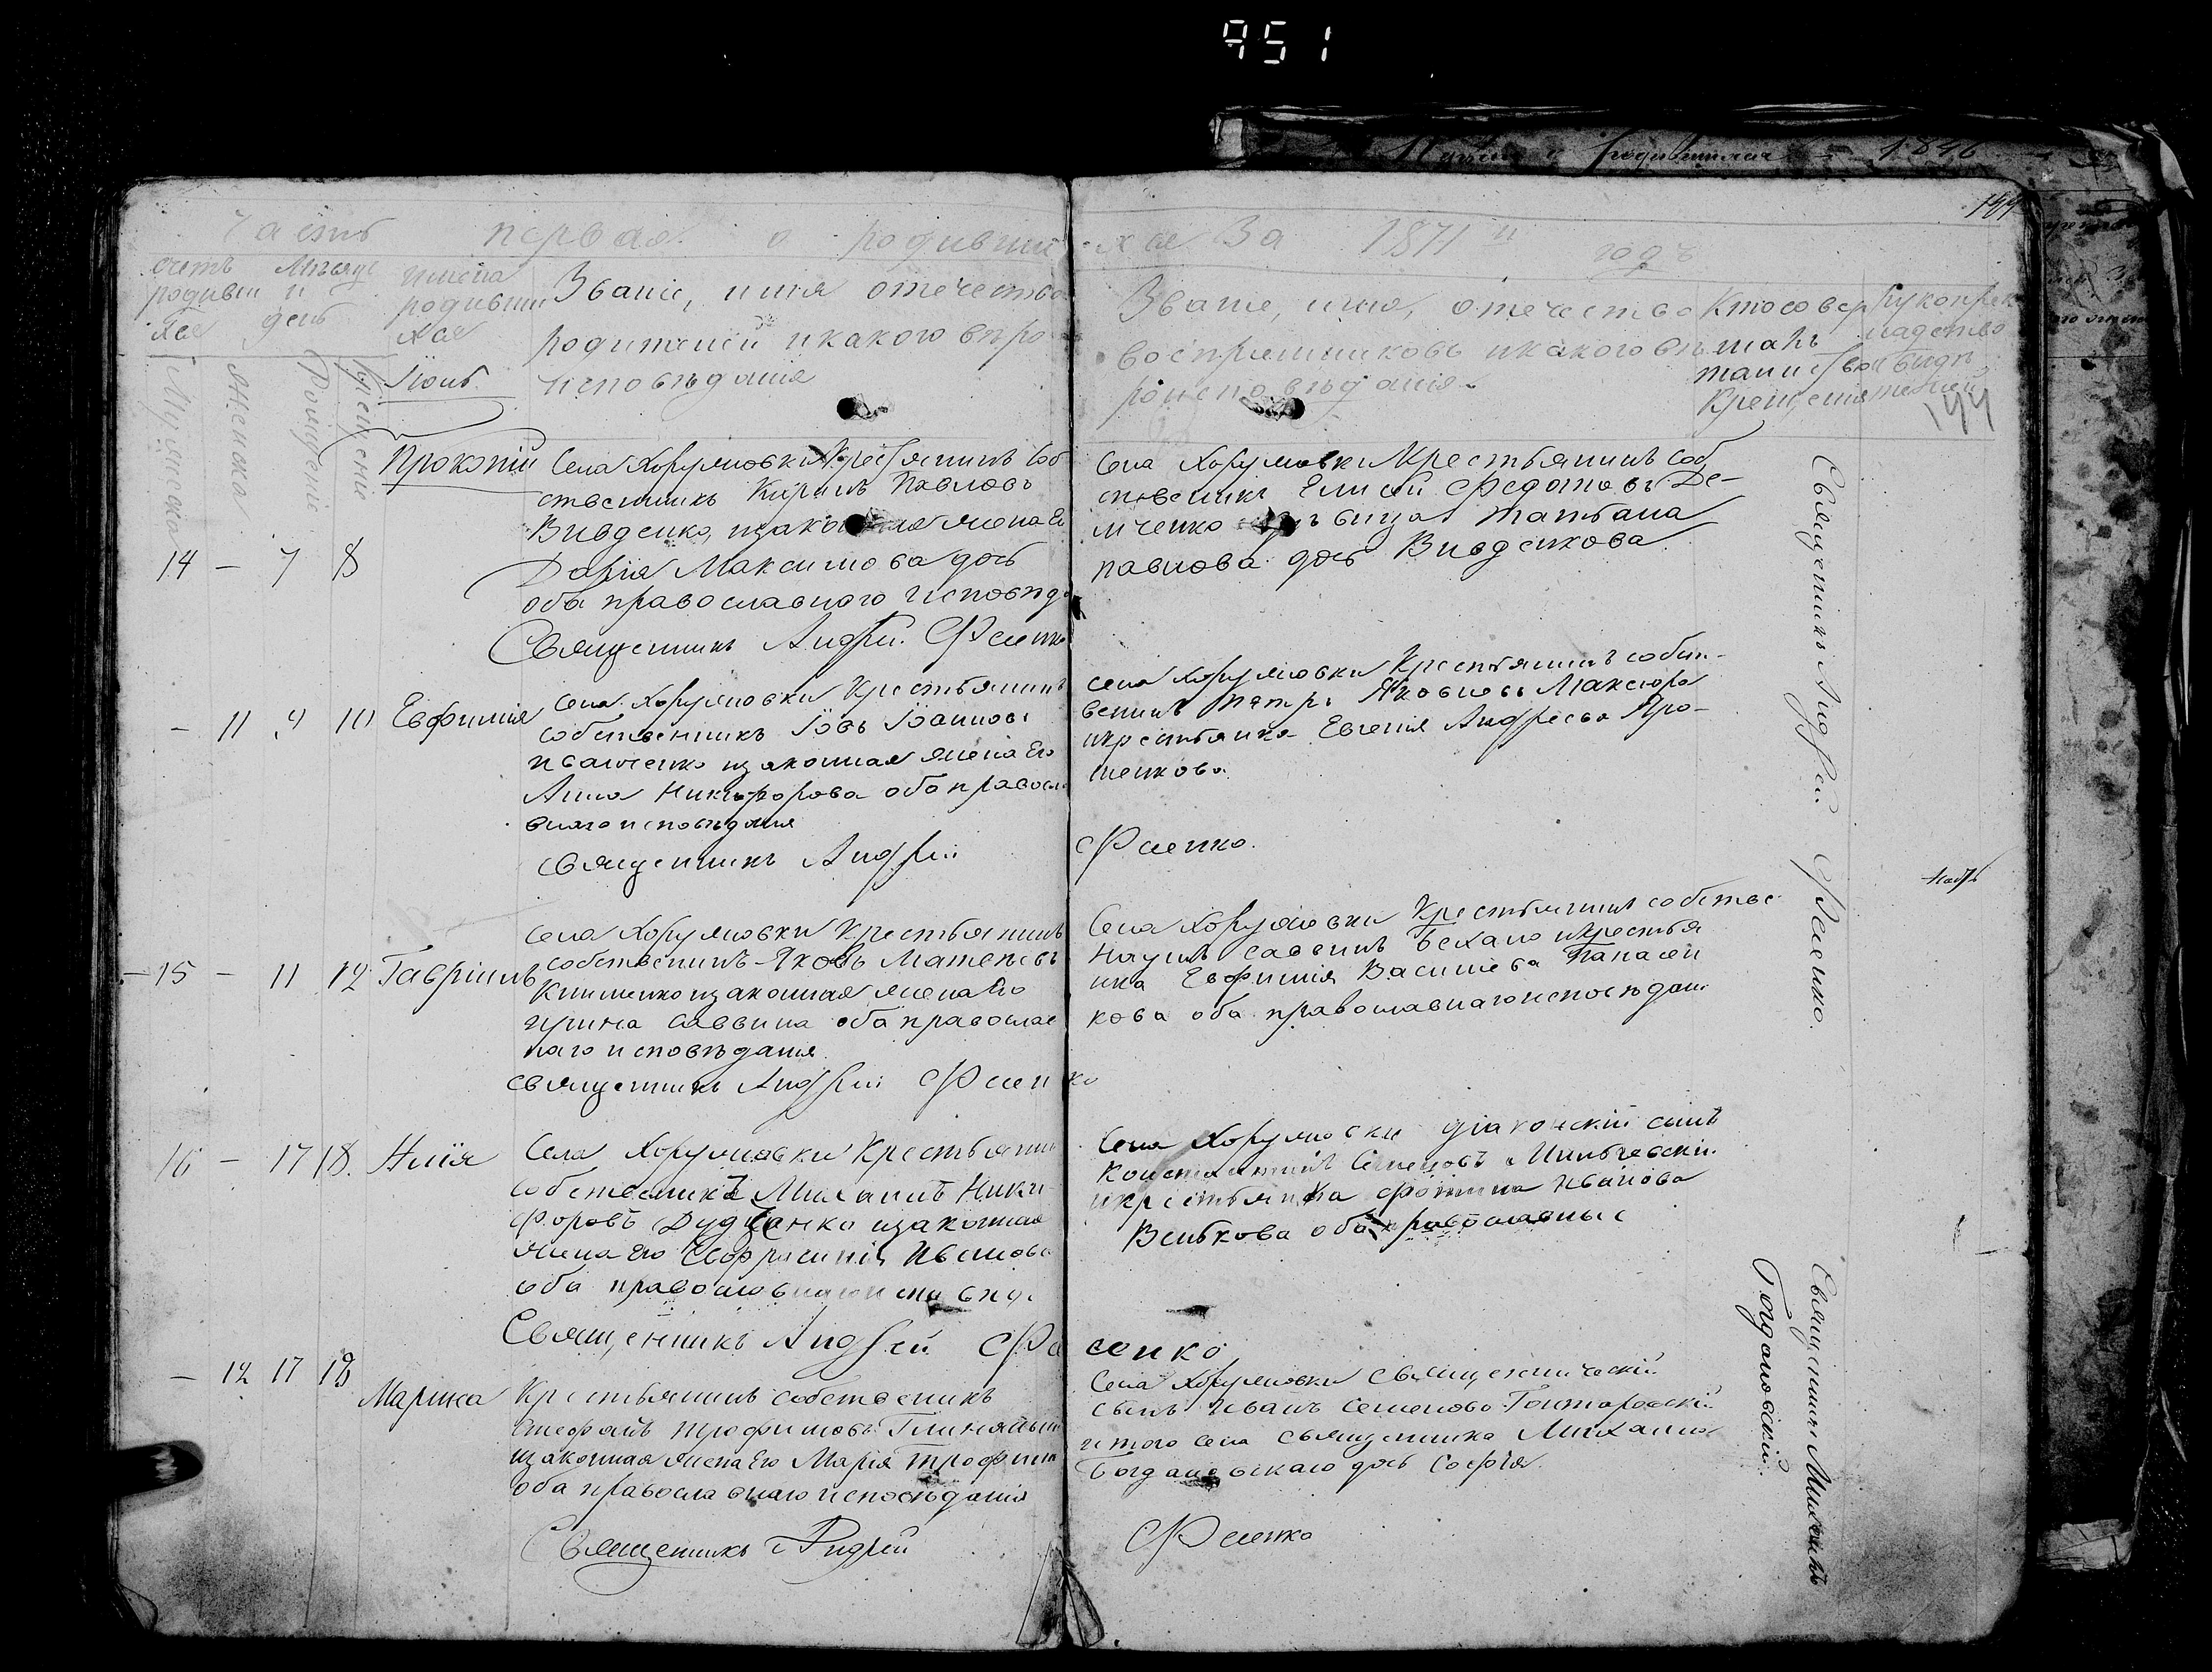 951
1846
Часть первая о родивши
хся За 1871й годъ
144
счетъ родивши хся
Мѣсяцъ и день
имена родивши хся
Званіе, имя отечество
родителей и какого вѣро
исповѣданія
Званіе, имя, отечество
воспріемниковъ и какого вѣ
роисповѣданія.
Кто совер
шалъ
таинство
Крещенія
Мужеска
Женска
Рожденіе
Крещеніе
Іюль
144
14 — 7 8
Прокопій
Села Хоружовки Крестьянинъ Соб
ственникъ Кирилъ Павловъ
Вивденко, и законная жена Его
Дарія Максимова дочь
оба православного исповѣд
Священникъ Андрей Фесенко
Села Хоружовки Крестьянинъ Соб
ственикъ Елисей Федотовъ Де-
мченко Татьана
павлова дочь Вивденкова
— 11 9 10
Евфимія
Села Хоружовки Крестьянинъ
Собственникъ Іовъ Іоанновъ
Иванченко и законная жена Его
Анна Никифорова оба правосла
внаго исповѣданія
Священникъ Андрей
Фесенко.
Села Хоружовки Крестьянинъ собст-
венникъ Петръ Яковлевъ Максюра
и крестьянка Евгенія Андреева Яро-
шенкова
— 15 — 11 12
Гавріилъ
Села Хоружовки Крестьянинъ
собственикъ Яковъ Матвѣевъ
Клименко и законная жена Его
Ирина Саввина оба православ
наго исповѣданія
Священникъ Андрей Фесенко
Села Хоружовки Крестьянинъ собстве
Наумъ Саввинъ Бехало и крестья
нка Евфимія Василіева Панасен
кова оба православнаго исповѣдані
16 — 17 18.
Илія
Села Хоружовки Крестьянин
собственикъ Михаилъ Ники
форовъ Дудченко и законная
жена Его Евфросинія Иванова
оба православнаго исповѣд.
Священникъ Андрей Фе
сенко
Села Хоружовки діаконскій сынъ
Константинъ Семеновъ Мильгевскій
и крестьянка Фотина Иванова
Велькова оба православные
— 12 17 18
Марина
Крестьянинъ собственикъ
Стефанъ Трофимовъ
и законная жена Его Марія Трофима
оба православнаго исповѣданія
Священникъ Андрей
Фесенко
Села Хоружовки Священническій
сынъ Иванъ Семеновъ Гонтаровскій
и того села священника Михаила
Богдановскаго дочь Софія.
Священникъ Андрей Фесенко.
Священникъ Михаилъ
Богдановскій.